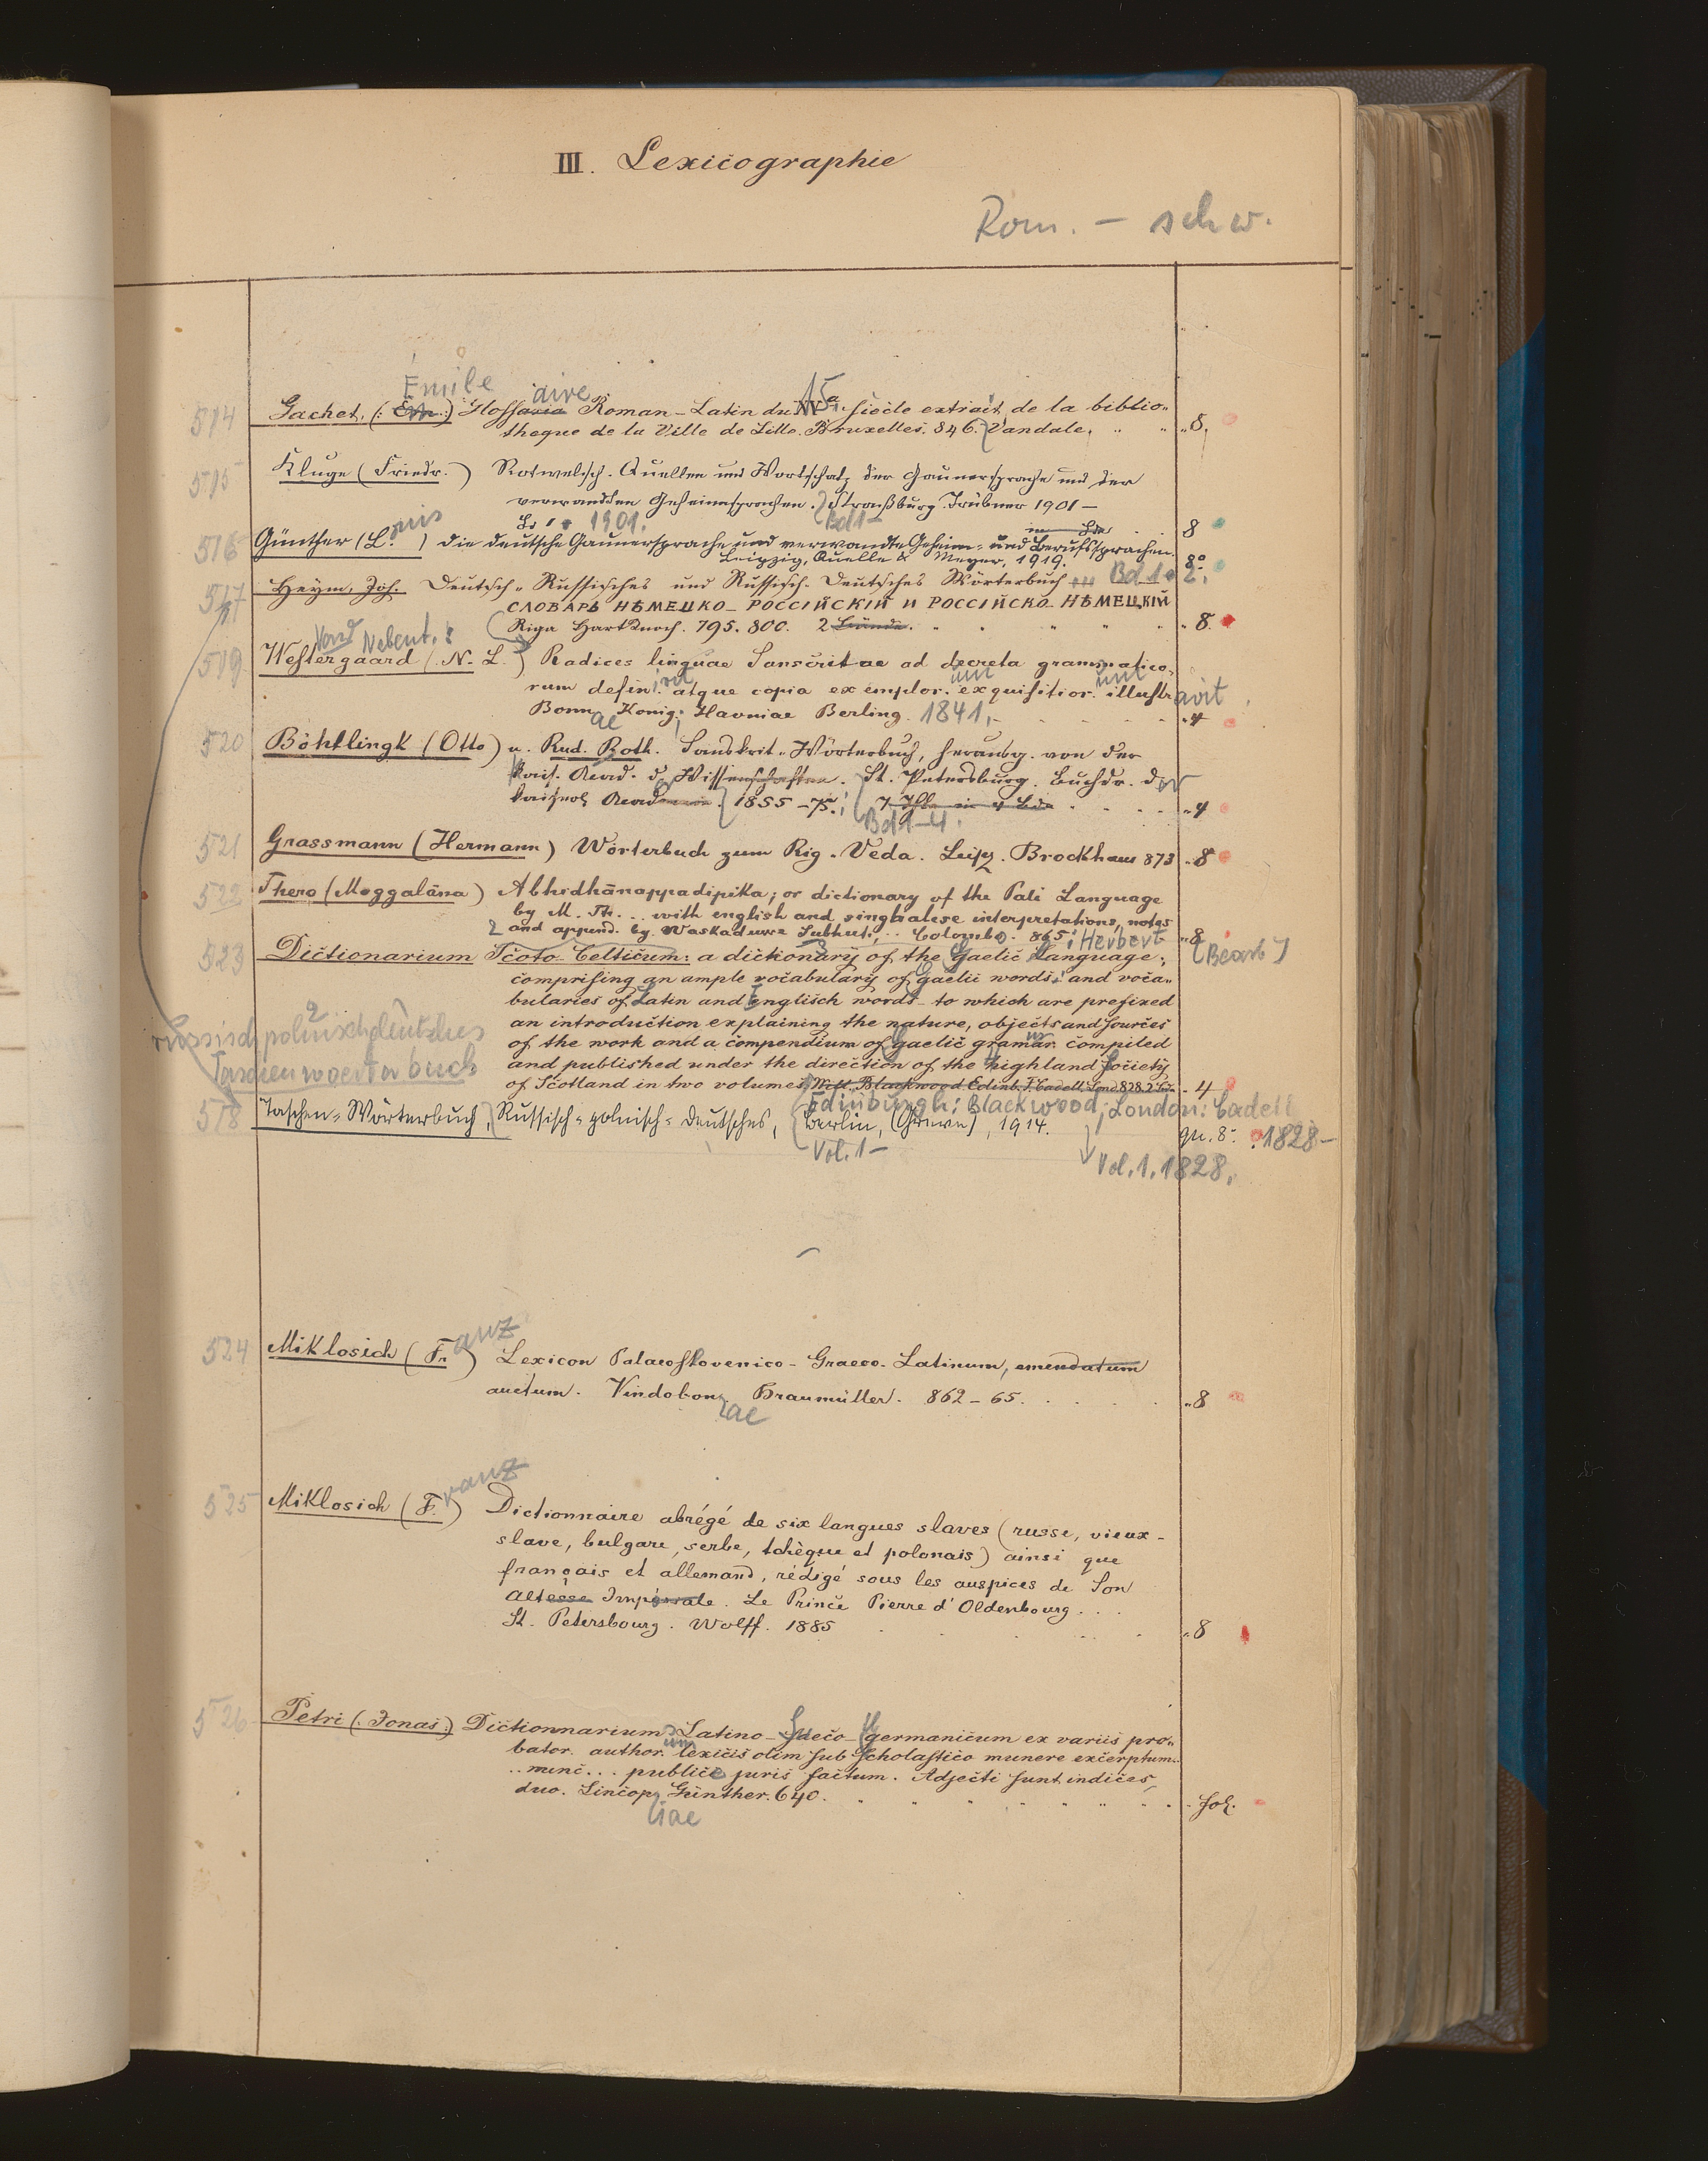 III. Lexicographie
Rom. - schw.
Emile aire 15.
514 Gachet, (: Em :) Glossaria Roman-Latin du XVe siècle extrait de la biblio-
theque de la Ville de Lille. Bruxelles. 846. Vandale. 8.
515 Kluge (Friedr.) Rotwelsch. Quellen und Wortschatz der Gaunersprache und der
verwandten Geheimsprachen. Straßburg. Trübner 1901 -
Bd 1 1901. Bd 1 - 8
516 Günther (L. ) Die deutsche Gaunersprache und verwandte Geheim- und Berufssprachen.
Leipzig, Quelle & Meyer, 1919. 8°
517 Heym, Joh. Deutsch-Russisches und Russisch-Deutsches Wörterbuch Bd 1 2.
СЛОВАРЬ НѢМЕЦКО-РОССІЙСКІЙ И РОССІЙСКО-НѢМЕЦКІЙ
Riga Hartknoch. 795. 800. 2 Bände. 8.
Nebent.:
519 Westergaard (N. L.) Radices linguae Sanscritae ad decreta grammatico-
rum defin. atque copia exemplor. exquisitior. illustr avit
Bonn ae König: Havniae Berling. 1841. 4
520 Böhtlingk (Otto) u. Rud. Roth. Sanskrit-Wörterbuch, herausg. von der
Kais. Akad. d. Wissenschaften. St. Petersburg. Buchdr. der
Kaiserl. Akademie. 1855-75. 7 Thle in 4 Bde 4
Bd 1-4.
521 Grassmann (Hermann) Wörterbuch zum Rig-Veda. Leipz. Brockhaus 873 8
522 Thero (Moggalāna) Abhidhānappadipika; or dictionary of the Pali Language
by M. Th. .. with english and singhalese interpretations, notes
and append. by Waskaduwe Subhuti, .. Colombo. 865. Herbert 8
523 Dictionarium Scoto-Celticum: a dictionary of the Gaelic Language; (Bearb)
comprising an ample vocabulary of gaelic words, and voca-
bularies of Latin and englisch words - to which are prefixed
an introduction explaining the nature, objects and sources
of the work and a compendium of gaelic gramar. compiled
and published under the direction of the highland society
of Scotland in two volumes, Will. Blackwood Edinb. T. Cadell, Lond. 828. 2 Bde. 4
Russisch polnisch deutsches
Taschenwoerterbuch
Edinburgh: Blackwood; London: Cadell
518 Taschen-Wörterbuch, Russisch-polnisch-deutsches, Berlin, (Grieve), 1914. gr. 8°. 1828-
Vol. 1 -
Vol. 1. 1828.
524 Miklosich (Fr anz) Lexicon Palaeoslovenico-Graeco-Latinum, emendatum
auctum. Vindobon ae Braumüller. 862-65. 8
525 Miklosich (F. ranz) Dictionnaire abrégé de six langues slaves (russe, vieux-
slave, bulgare, serbe, tchèque et polonais) ainsi que
français et allemand, rédigé sous les auspices de Son
Altesse Impériale. Le Prince Pierre d'Oldenbourg...
St. Petersbourg. Wolff. 1885 8
526 Petri (: Jonas :) Dictionnarium Latino-Sueco-germanicum ex variis pro-
bator. author. lexicis olim sub scholastico munere excerptum.
.. nunc... publici juris factum. Adjecti sunt indices
duo. Lincop iae Günther. 640. fol.